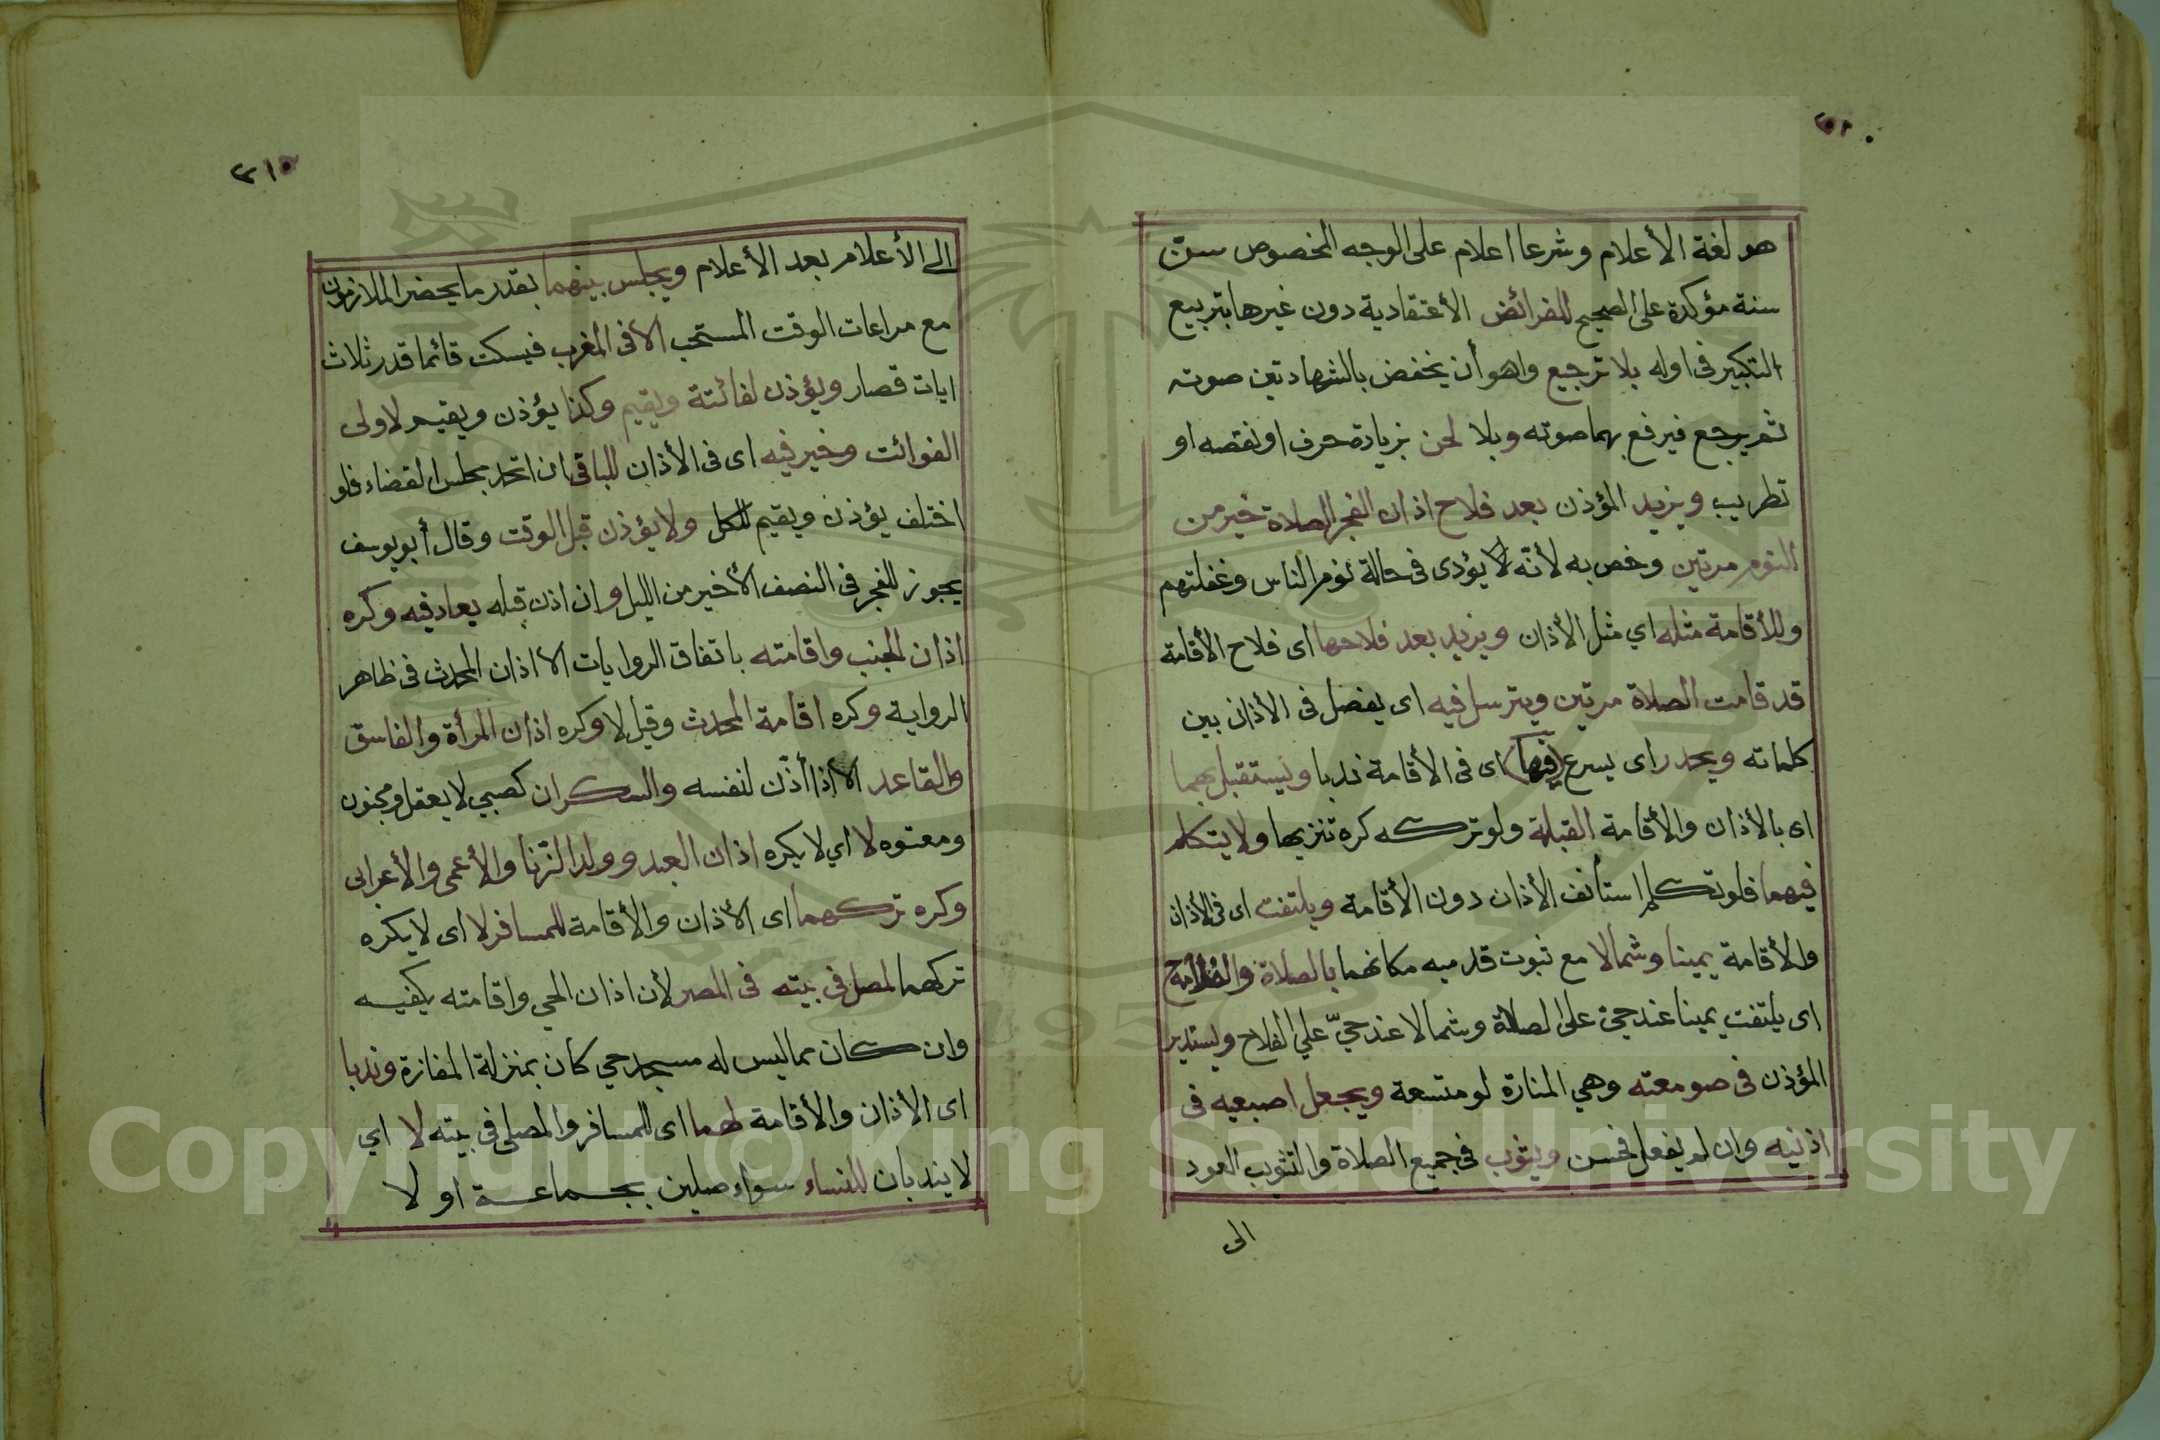 هو لغة الأعلام وشرعا اعلام على الوجه المخصوص سنّ
سنة مؤكدة على الصحيح للفرائض الأعتقادية دون غيرها بتربيع
التكبير فى اوله بلا ترجيع واهو أن يخفض بالشهادتين صوته
ثم يرجع فيرفع بهما صوته وبلا لحن بزيادة حرف او نقصه او
تطريب ويزيد المؤذن بعد فلاح اذان الفجر الصلاة خير من
النوم مرتين وخص به لأنّه لا يؤدى فى حالة نوم الناس وغفلتهم
وللأقامة مثله اي مثل الأذان ويزيد بعد فلاحها اى فلاح الأقامة
قد قامت الصلاة مرتين ويترسل فيه اى يفصل فى الأذان بين
كلماته ويحدر اى يسرع (فيها) اى فى الأقامة ندبا ويستقبل بهما
اى بالأذان والأقامة القبلة ولو تركه كره تنزيها ولا يتكلم
فيهما فلو تكلم استأنف الأذان دون الأقامة ويلتفت اى فى الأذان
والأقامة يمينا وشمالا مع ثبوت قدميه مكانهما بالصلاة والفلاح
اى يلتفت يمينا عند حيّ على الصلاة وشمالا عند حيّ علي الفلاح ويستدير
المؤذن فى صومعته وهي المنارة لو متسعة ويجعل اصبعيه فى
اذنيه وان لم يفعل فحسن ويثوب فى جميع الصلاة والتثويب العود
الى
٢١٥
الى الأعلام بعد الأعلام ويجلس بينهما بقدر ما يحضر الملازمون
مع مراعات الوقت المستحب الا فى المغرب فيسكت قائما قدر ثلاث
ايات قصار ويؤذن لفائتة ويقيم وكذا يؤذن ويقيم لاولى
الفوائت وخير فيه اى فى الأذان للباقى ان اتحد مجلس القضاء فلو
اختلف يؤذن ويقيم للكل ولا يؤذن قبل الوقت وقال أبو يوسف
يجوز للفجر فى النصف الأخير من الليل وان اذن قبله يعاد فيه وكره
اذان الجنب واقامته باتفاق الروايات الا اذان المحدث فى ظاهر
الرواية وكره اقامة المحدث وقيل لا وكره اذان المرأة والفاسق
والقاعد الا اذا أذّن لنفسه والسكران كصبي لا يعقل ومجنون
ومعتوه لا اي لا يكره اذان العبد وولد الزّنا والأعمى والأعرابى
وكره تركهما اى الأذان والأقامة للمسافر لا اى لا يكره
تركهما لمصل فى بيته فى المصر لأن اذان الحي واقامته يكفيه
وان كان مما ليس له مسجد حي كان بمنزلة المفازة وندبا
اى الأذان والأقامة لهما اى للمسافر والمصلى فى بيته لا اي
لا يندبان للنساء سواء صلين بجماعة او لا
Copyright © King Saud University
1957